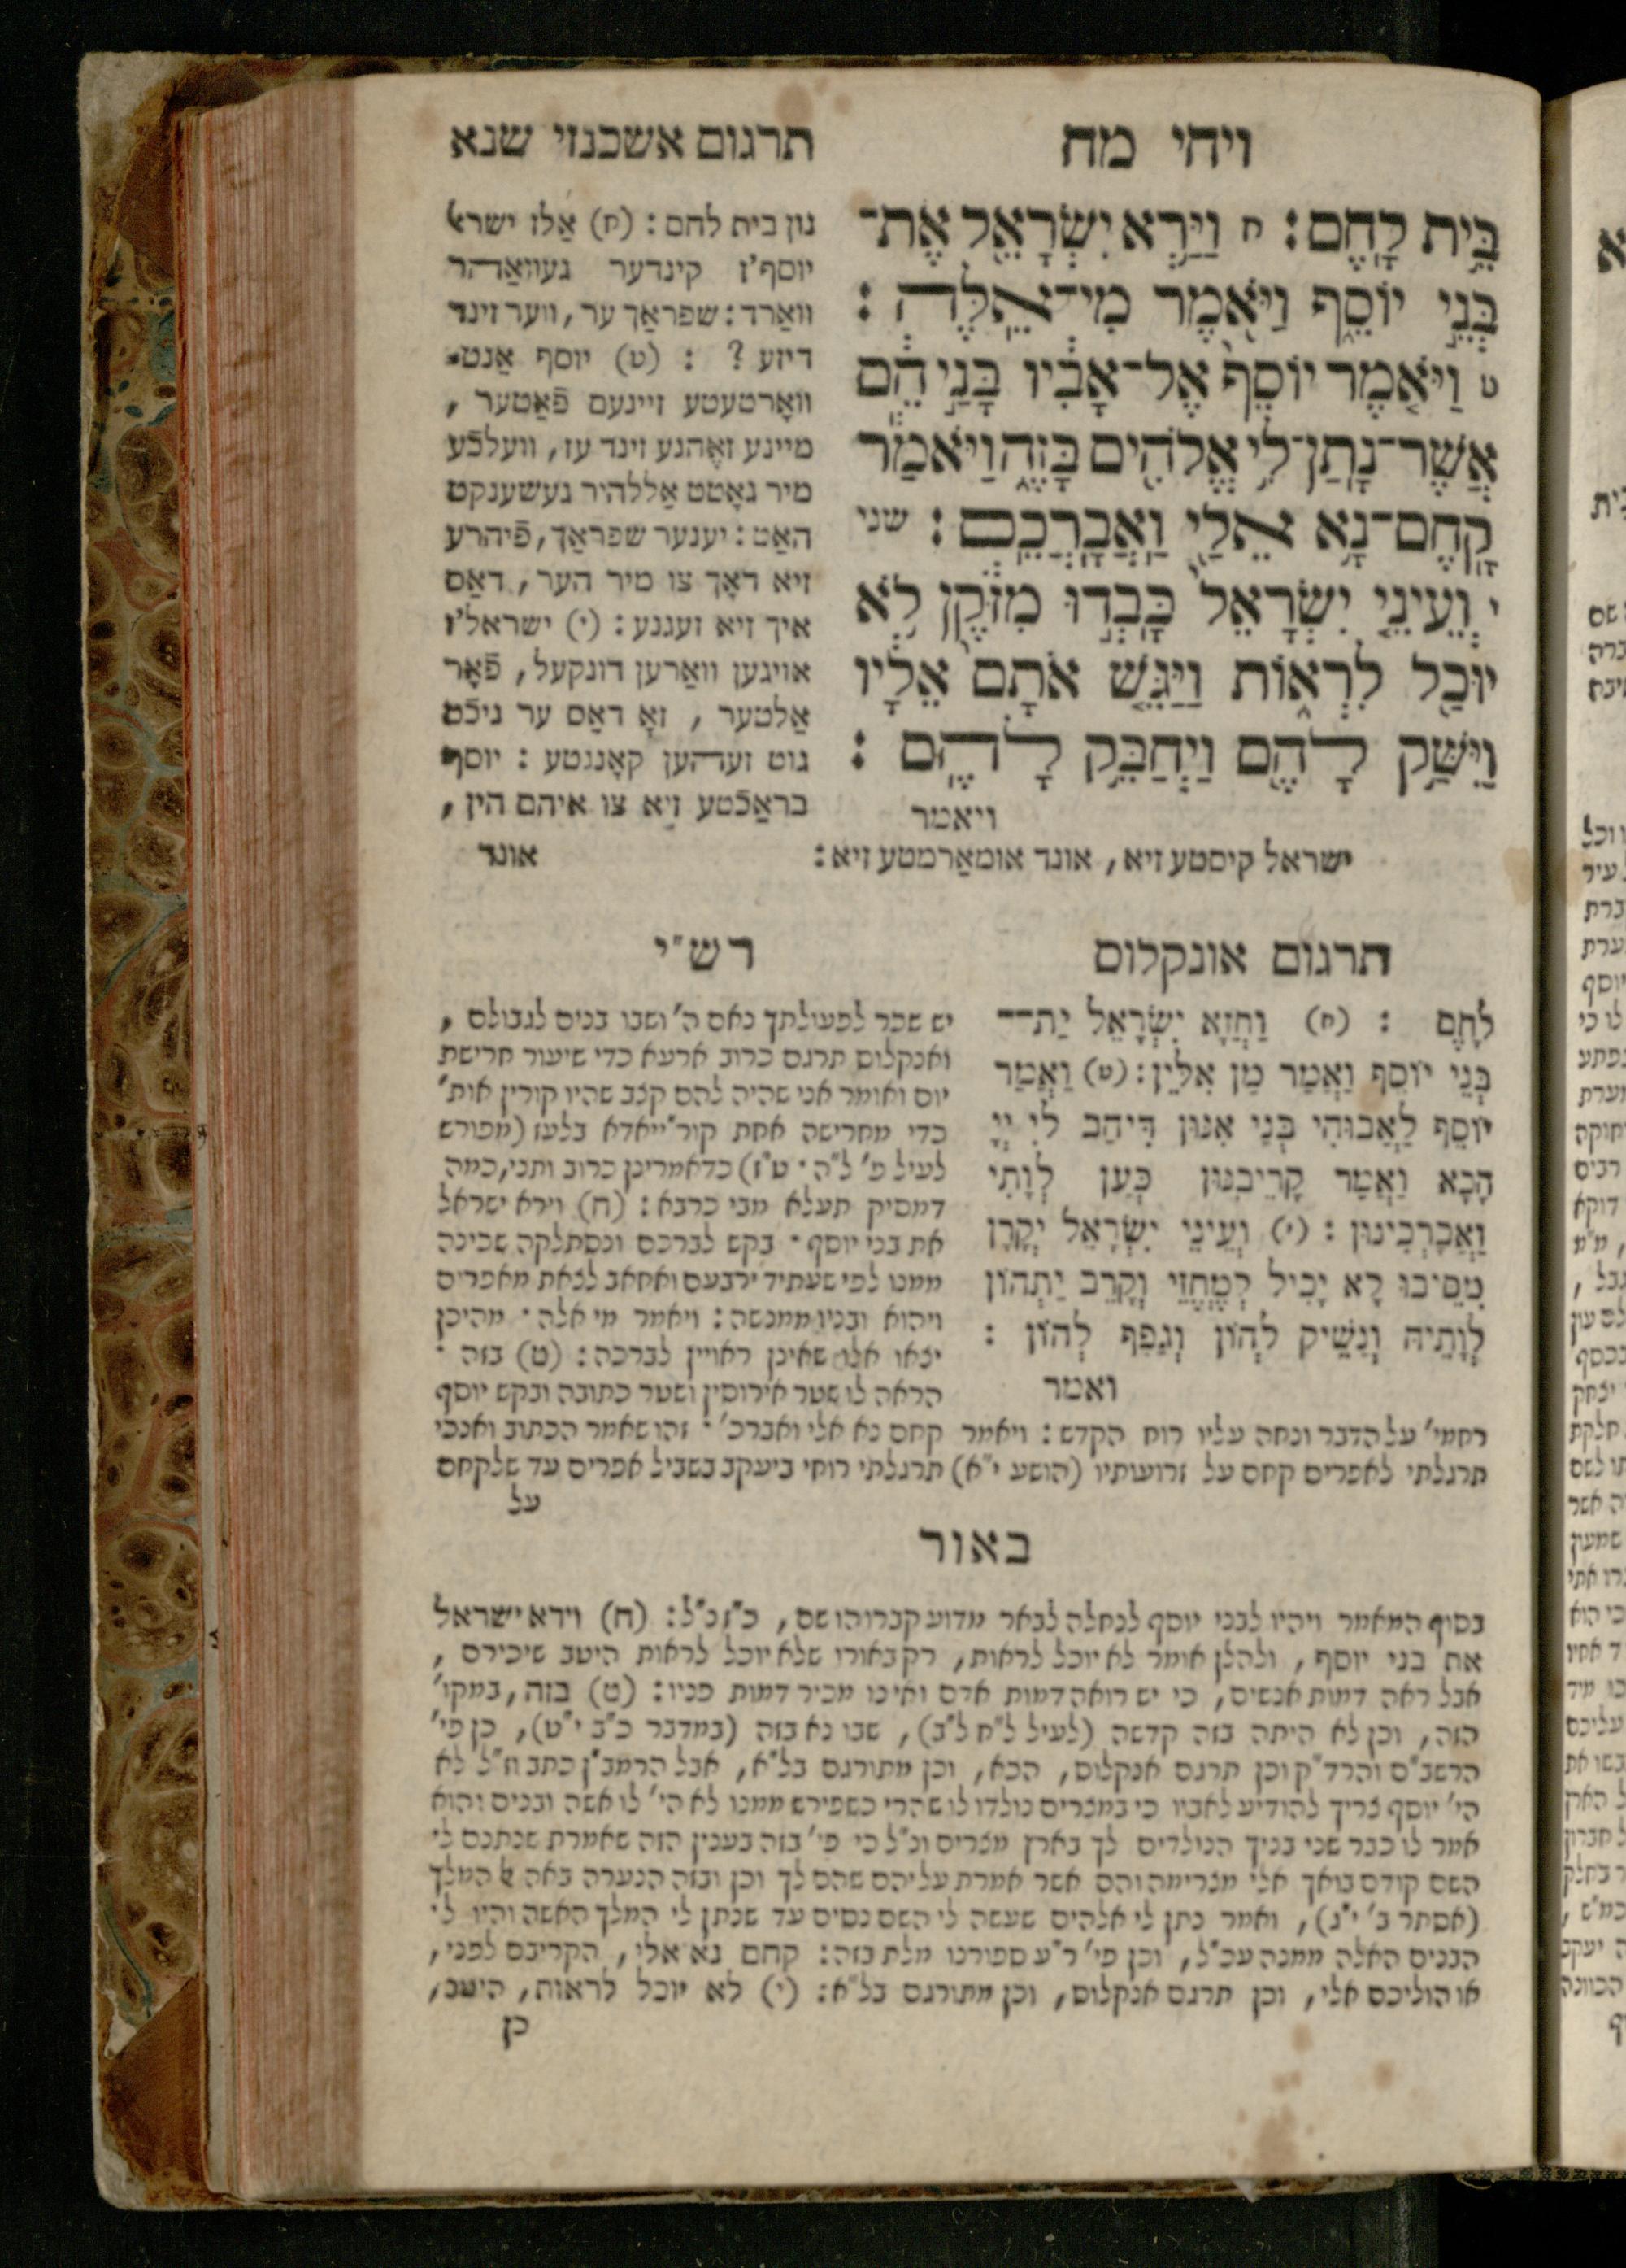 ויחי מח
תרגום אשכנזי שנא
בֵּ֥ית לָֽחֶם׃ ח וַיַּ֥רְא יִשְׂרָאֵ֖ל אֶת־
בְּנֵ֣י יוֹסֵ֑ף וַיֹּ֖אמֶר מִי־אֵֽלֶּה׃
ט וַיֹּ֤אמֶר יוֹסֵף֙ אֶל־אָבִ֔יו בָּנַ֣י הֵ֔ם
אֲשֶׁר־נָֽתַן־לִ֥י אֱלֹהִ֖ים בָּזֶ֑ה וַיֹּאמַ֕ר
קָֽחֶם־נָ֥א אֵלַ֖י וַאֲבָרֲכֵֽם׃ שני
י וְעֵינֵ֤י יִשְׂרָאֵל֙ כָּבְד֣וּ מִזֹּ֔קֶן לֹ֥א
יוּכַ֖ל לִרְא֑וֹת וַיַּגֵּ֤שׁ אֹתָם֙ אֵלָ֔יו
וַיִּשַּׁ֥ק לָהֶ֖ם וַיְחַבֵּ֥ק לָהֶֽם׃
ויאמר
נון בית לחם: (ח) אַלז ישראל
יוסף'ז קינדער געוואַהר
וואַרד: שפראַך ער, ווער זינד
דיזע? : (ט) יוסף אַנט־
וואָרטעטע זיינעם פֿאַטער,
מיינע זאָהנע זינד עז, וועלכֿע
מיר גאָטט אַללהיר געשענקט
האַט: יענער שפראַך, פֿיהרע
זיא דאָך צו מיר הער, דאַס
איך זיא זעגנע: (י) ישראל'ז
אויגען וואַרען דונקעל, פֿאָר
אַלטער, זאָ דאַס ער ניכֿט
גוט זעהען קאָננטע: יוסף
בראַכֿטע זיא צו איהם הין,
ישראל קיסטע זיא, אונד אומאַרמטע זיא:
אונד
תרגום אונקלוס
לָחֶם : (ח) וַחֲזָא יִשְׂרָאֵל יַת־
בְּנֵי יוֹסֵף וַאֲמַר מַן אִלֵּין: (ט) וַאֲמַר
יוֹסֵף לַאֲבוּהִי בְּנַי אִנּוּן דִּיהַב לִי יְיָ
הָכָא וַאֲמַר קָרֵיבִנּוּן כְּעַן לְוָתִי
וַאֲבָרְכִינּוּן: (י) וְעֵינֵי יִשְׂרָאֵל יְקָרָן
מִסֵּיבוּ לָא יָכִיל לְמֶחֱזֵי וְקָרֵב יַתְהוֹן
לְוָתֵיהּ וְנַשֵּׁיק לְהוֹן וְגַפֵּף לְהוֹן :
ואמר
רש"י
יש שכר לפעולתך נאם ה' ושבו בנים לגבולם,
ואנקלוס תרגם כרוב ארעא כדי שיעור חרישת
יום ואומר אני שהיה להם קצב שהיו קורין אות'
כדי מחרישה אחת קור"ייאדא בלעז (מפורש
לעיל פ' ל"ה ט"ז) כדאמרינן כרוב ותני, כמה
דמסיק תעלא מבי כרבא: (ח) וירא ישראל
את בני יוסף · בקש לברכם ונסתלקה שכינה
ממנו לפי שעתיד ירבעם ואחאב לצאת מאפרים
ויהוא ובניו ממנשה: ויאמר מי אלה · מהיכן
יצאו אלו שאינן ראויין לברכה: (ט) בזה ·
הראה לו שטר אירוסין ושטר כתובה ובקש יוסף
רחמי' על הדבר ונחה עליו רוח הקדש: ויאמר קחם נא אלי ואברכ' · זהו שאמר הכתוב ואנכי
תרגלתי לאפרים קחם על זרועותיו (הושע י"א) תרגלתי רוחי ביעקב בשביל אפרים עד שלקחם
על
באור
בסוף המאמר ויהיו לבני יוסף לנחלה לבאר מדוע קברוהו שם, כ"ז כ"ל: (ח) וירא ישראל
את בני יוסף, ולהלן אומר לא יוכל לראות, רק באורו שלא יוכל לראות היטב שיכירם,
אבל ראה דמות אנשים, כי יש רואה דמות אדם ואינו מכיר דמות פניו: (ט) בזה, במקו'
הזה, וכן לא היתה בזה קדשה (לעיל ל"ח ל"ב), שבו נא בזה (במדבר כ"ב י"ט), כן פי'
הרשב"ם והרד"ק וכן תרגם אנקלוס, הכא, וכן מתורגם בל"א, אבל הרמב"ן כתב וז"ל לא
הי' יוסף צריך להודיע לאביו כי במצרים נולדו לו שהרי כשפירש ממנו לא הי' לו אשה ובנים והוא
אמר לו כבר שני בניך הנולדים לך בארץ מצרים וכ"ל כי פי' בזה בענין הזה שאמרת שנתנם לי
השם קודם בואך אלי מצרימה והם אשר אמרת עליהם שהם לך וכן ובזה הנערה באה אל המלך
(אסתר ב' י"ג), ואמר נתן לי אלהים שעשה לי השם נסים עד שנתן לי המלך האשה והיו לי
הבנים האלה ממנה עכ"ל, וכן פי' ר"ע ספורנו מלת בזה: קחם נא אלי, הקריבם לפני,
או הוליכם אלי, וכן תרגם אנקלוס, וכן מתורגם בל"א: (י) לא יוכל לראות, היטב,
כן